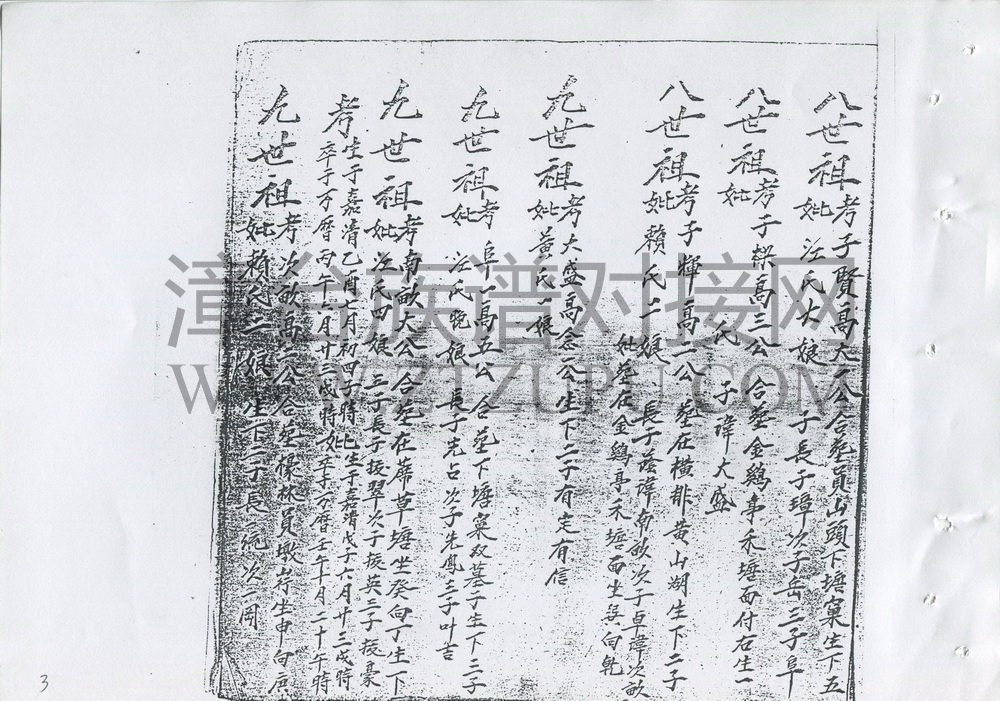 八世祖考子賢高大一公合塟員山頭下塘窠生下五
妣汪氏大娘 子長子璋次子岳三子阜
八世祖考子樑高三公合塟金鷄亭禾塘面付右生一
妣 氏 子諱大盛
八世祖考子輝高一公塟在橫排黄山湖生下二子
妣賴氏二娘 長子諱南畝次子卓諱次畝
妣塟在金鷄亭禾塘面坐 向乾
九世祖考大盛高念一公生下二子有定有信
妣黄氏一娘
九世祖考阜一高五公合塟下塘窠双墓子生下三子
妣汪氏晚娘 長子先占次子先鳳三子叶吉
九世祖考南畝大公合塟在蓆草塘坐癸向丁生下
妣汪氏四娘 三子長子振翠次子振英三子振豪
考生于嘉清乙酉七月初四子時妣生于嘉清戊子六月廿三戌時
卒于万曆丙午六月廿三戌時妣卒于万曆壬午年月二十午時
九世祖考次畝高一公合塟檺林員墩岸坐申向庚
妣賴氏二娘 生下二子長 次
漳台族谱对接网
WWW.ZTZUPU.COM
3